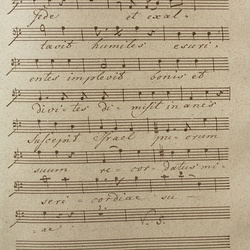 sede et exal-
tavit humiles esuri-
entes implevit bonis et
divi-tes di-misit inanes
suscepit Israel puerum
suum re-cor-datus mi-
seri-cordiae su-
ae V. S.